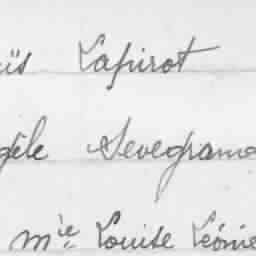 üis Lapirot
gèle Sevegrand
Mie Louise Léonie